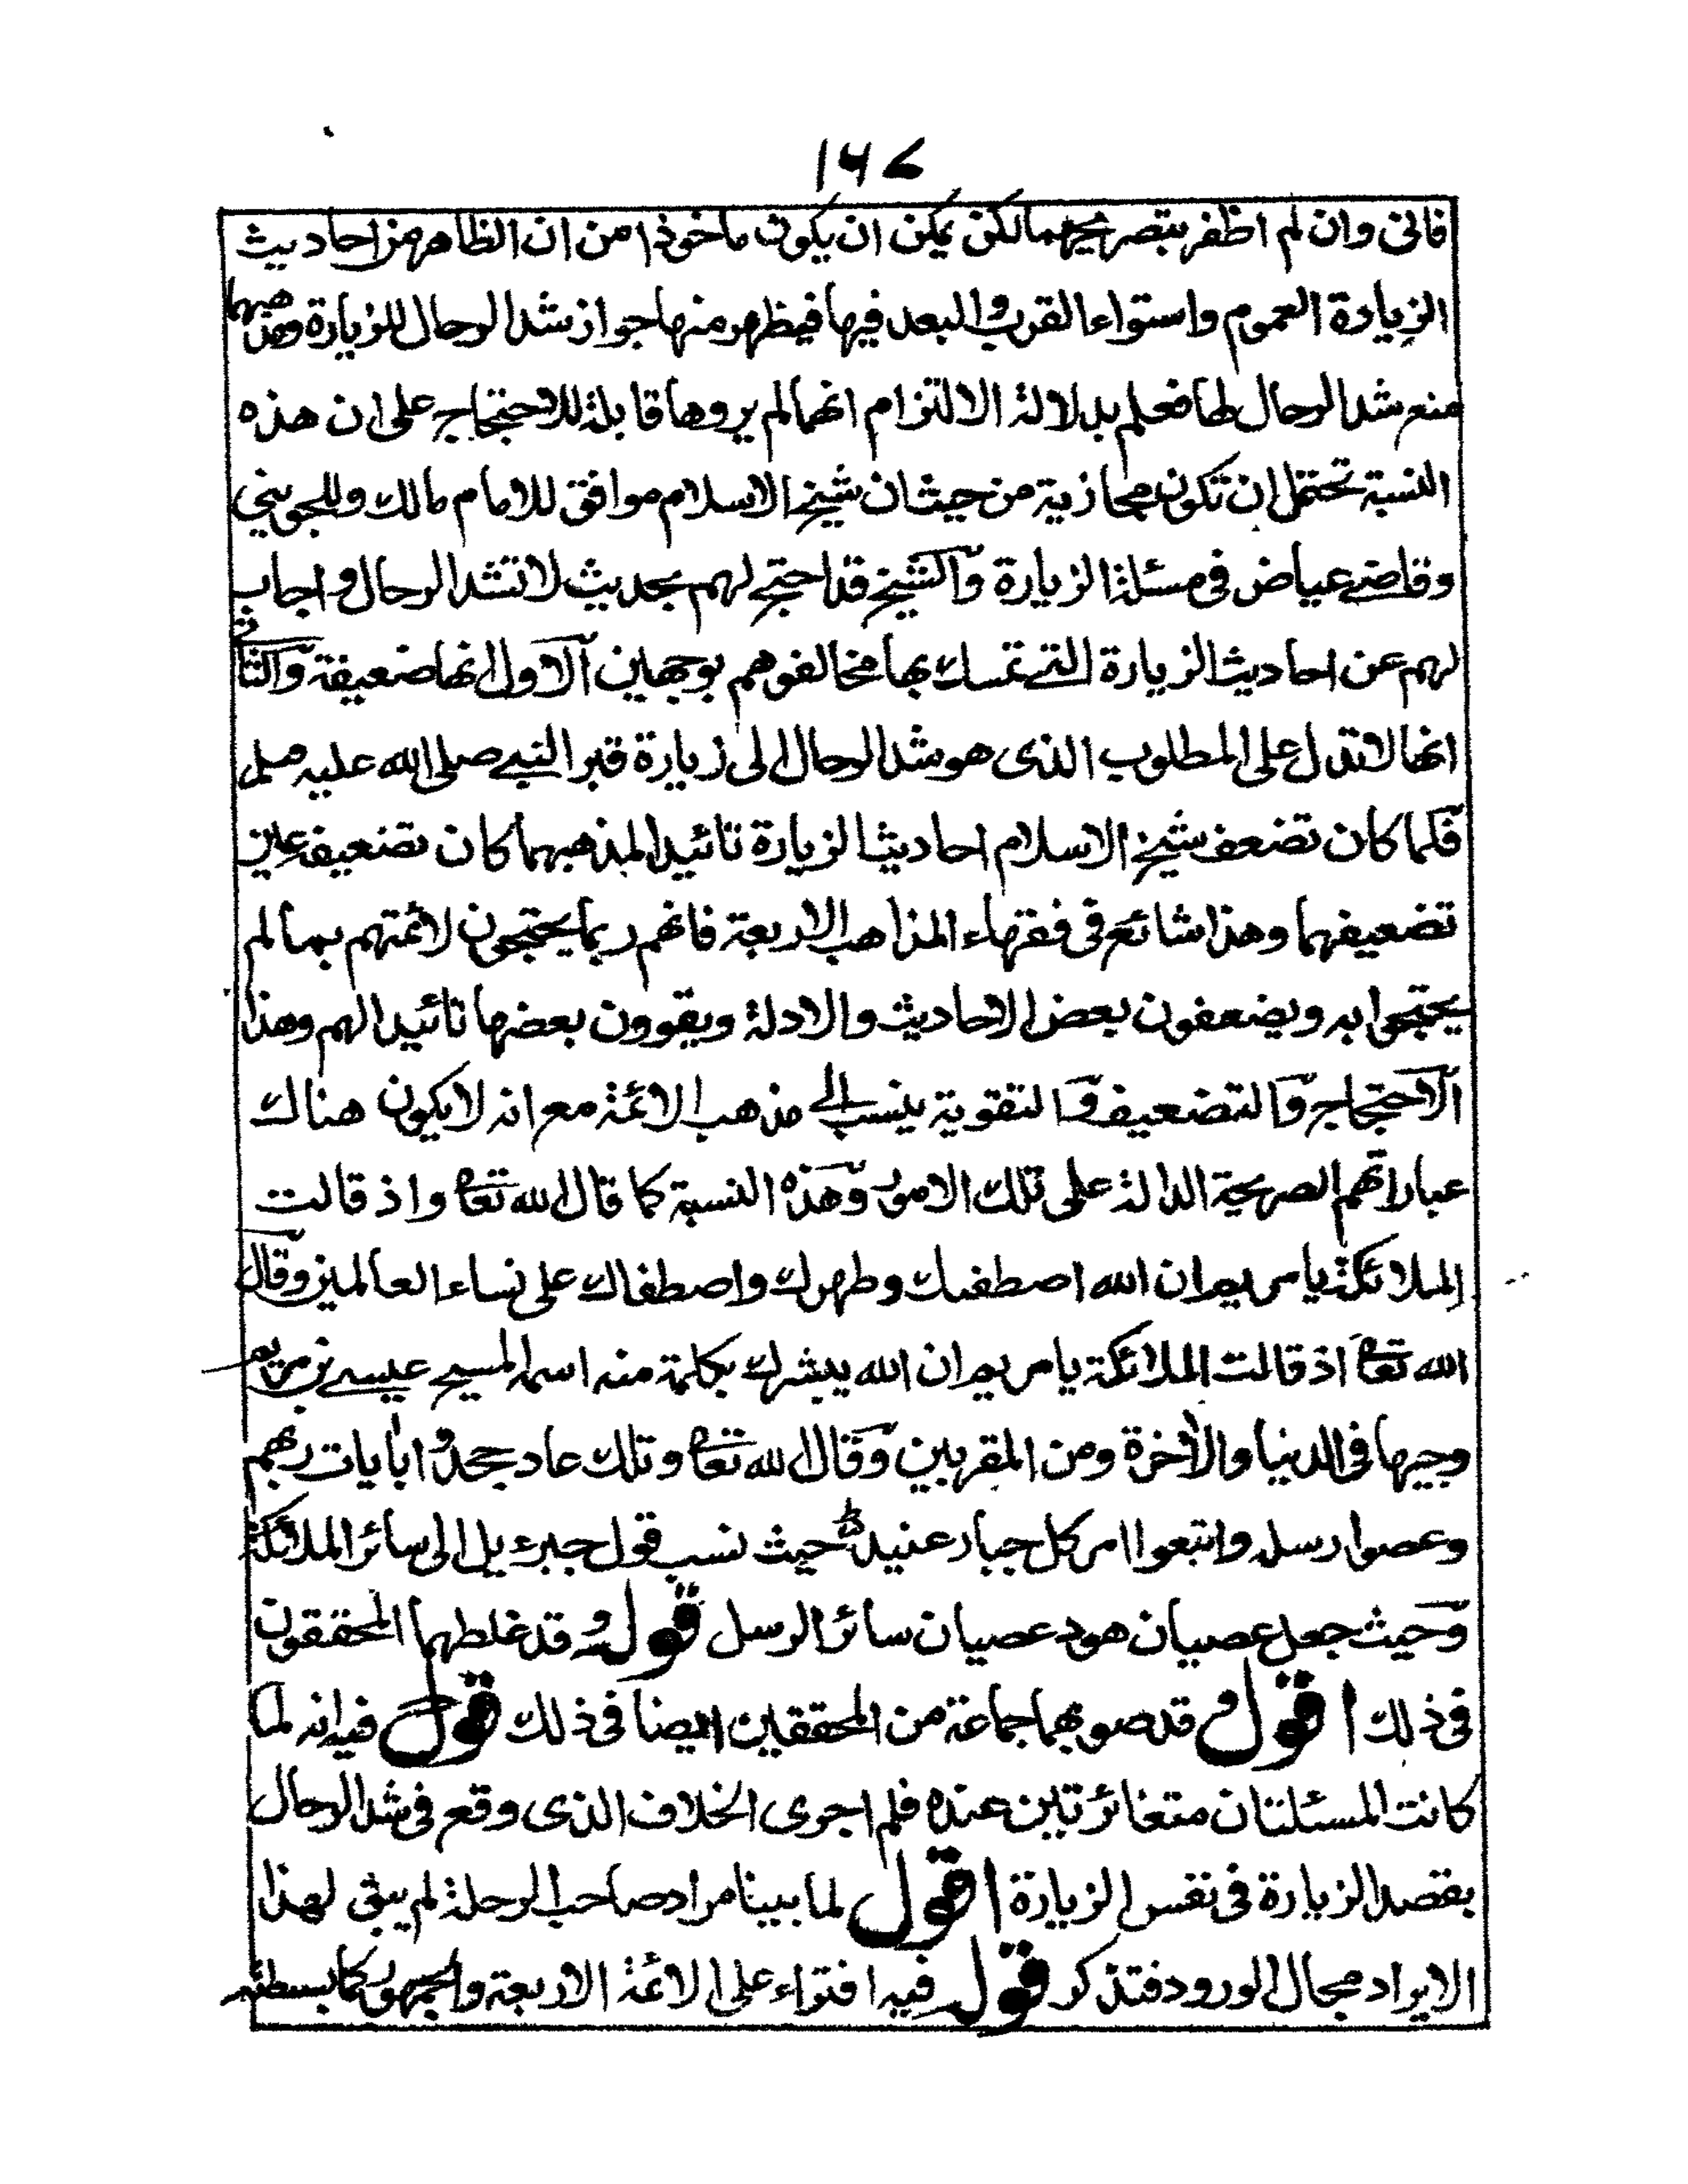 ١٦٧
فانى وان لم اظفر بتصريحهما لكن يمكن ان يكون ماخوذا من ان الظاهر من احاديث
الزيادة العموم واستواء القرب والبعد فيها فيظهر منها جواز شد الرحال للزيارة ومذهبهما
منع شد الرحال لها فعلم بدلالة الالتزام انهما لم يروها قابلة للاحتجاج على ان هذه
النسبة تحتمل ان تكون مجازية من حيث ان شيخ الاسلام موافق للامام مالك وللجويني
وقاضى عياض فى مسئلة الزيارة والشيخ قد احتج لهم بحديث لا تشد الرحال واجاب
لهم عن احاديث الزيارة التى تمسك بها مخالفوهم بوجهين الاول انها ضعيفة والثانى
انها لا تدل على المطلوب الذى هو شد الرحال الى زيارة قبر النبى صلى الله عليه وسلم
فلما كان تضعف شيخ الاسلام احاديث الزيارة تائيدا لمذهبهما كان تضعيفه عين
تضعيفهما وهذا شائع فى فقهاء المذاهب الاربعة فانهم ربما يحتجون لائمتهم بما لم
يحتجوا به ويضعفون بعض الاحاديث والادلة ويقوون بعضها تائيدا لهم وهذا
الاحتجاج والتضعيف والتقوية ينسب الى مذهب الائمة مع انه لا يكون هناك
عباراتهم الصريحة الدالة على تلك الامور وهذه النسبة كما قال الله تعا واذ قالت
الملائكة يا مريم ان الله اصطفىك وطهرك واصطفاك على نساء العالمين وقال
الله تعا اذ قالت الملائكة يا مريم ان الله يبشرك بكلمة منه اسمه المسيح عيسى بن مريم
وجيها فى الدنيا والاخرة ومن المقربين وقال الله تعا وتلك عاد جحدوا بايات ربهم
وعصوا رسله واتبعوا امر كل جبار عنيد حيث نسب قول جبرءيل الى سائر الملائكة
وحيث جعل عصيان هود عصيان سائر الرسل قوله وقد غلطهما المحققون
فى ذلك اقول وقد صوبهما جماعة من المحققين ايضا فى ذلك قوله فيه انه لما
كانت المسئلتان متغائرتين عنده فلم اجرى الخلاف الذى وقع فى شد الرحال
بقصد الزيارة فى نفس الزيارة اقول لما بينا مراد صاحب الرحلة لم يبق لهذا
الايراد مجال الورود فتذكر قوله فيه افتراء على الائمة الاربعة والجمهور كما بسطته